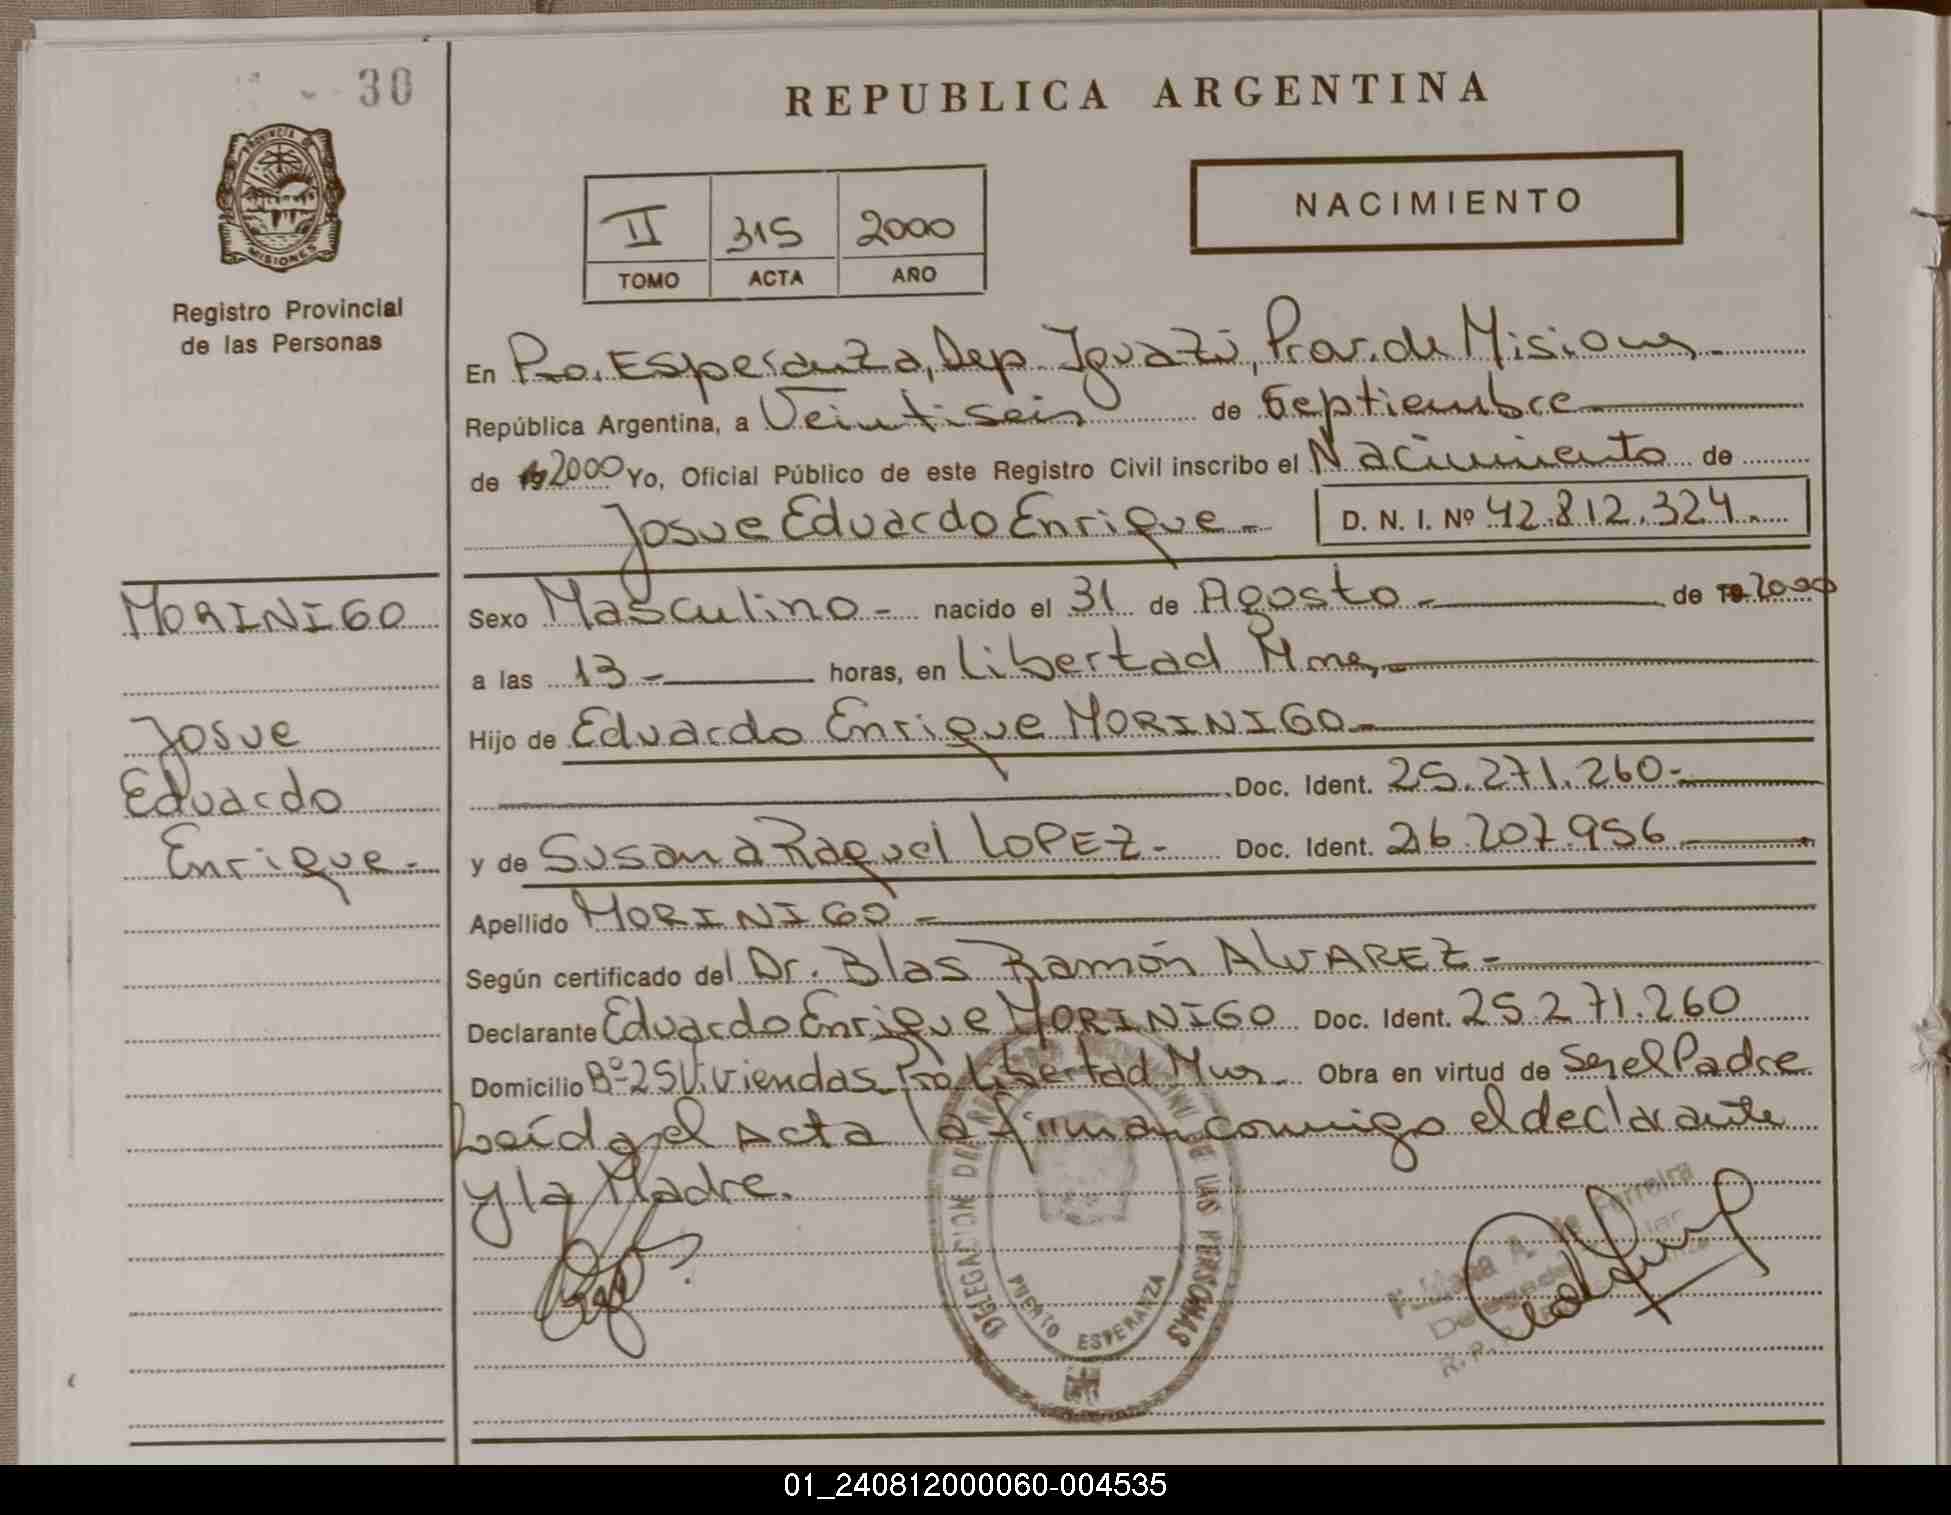 30
REPUBLICA ARGENTINA
PROVINCIA
MISIONES
Registro Provincial
de las Personas
II 315 2000
TOMO ACTA AÑO
NACIMIENTO
En Pto. Esperanza, Dep. Iguazú, Prov. de Misiones
República Argentina, a Veintiseis de Septiembre
de 19 2000 Yo, Oficial Público de este Registro Civil inscribo el Nacimiento de
Josue Eduardo Enrique - D. N. I. Nº 42.812.324.
MORINIGO
Josue
Eduardo
Enrique -
Sexo Masculino - nacido el 31 de Agosto - de 19 2000
a las 13 - horas, en Libertad Mnes,
Hijo de Eduardo Enrique MORINIGO -
Doc. Ident. 25.271.260 -
y de Susana Raquel LOPEZ - Doc. Ident. 26.207.956
Apellido MORINIGO -
Según certificado del Dr. Blas Ramón ALVAREZ -
Declarante Eduardo Enrique MORINIGO Doc. Ident. 25.271.260
Domicilio Bº 25 Viviendas Pto Libertad Mnes Obra en virtud de Ser el Padre
Leída el Acta la firman conmigo el declarante
y la Madre.
DELEGACION DE LAS PERSONAS
PUERTO ESPERANZA
A. de Ferreira
01_240812000060-004535